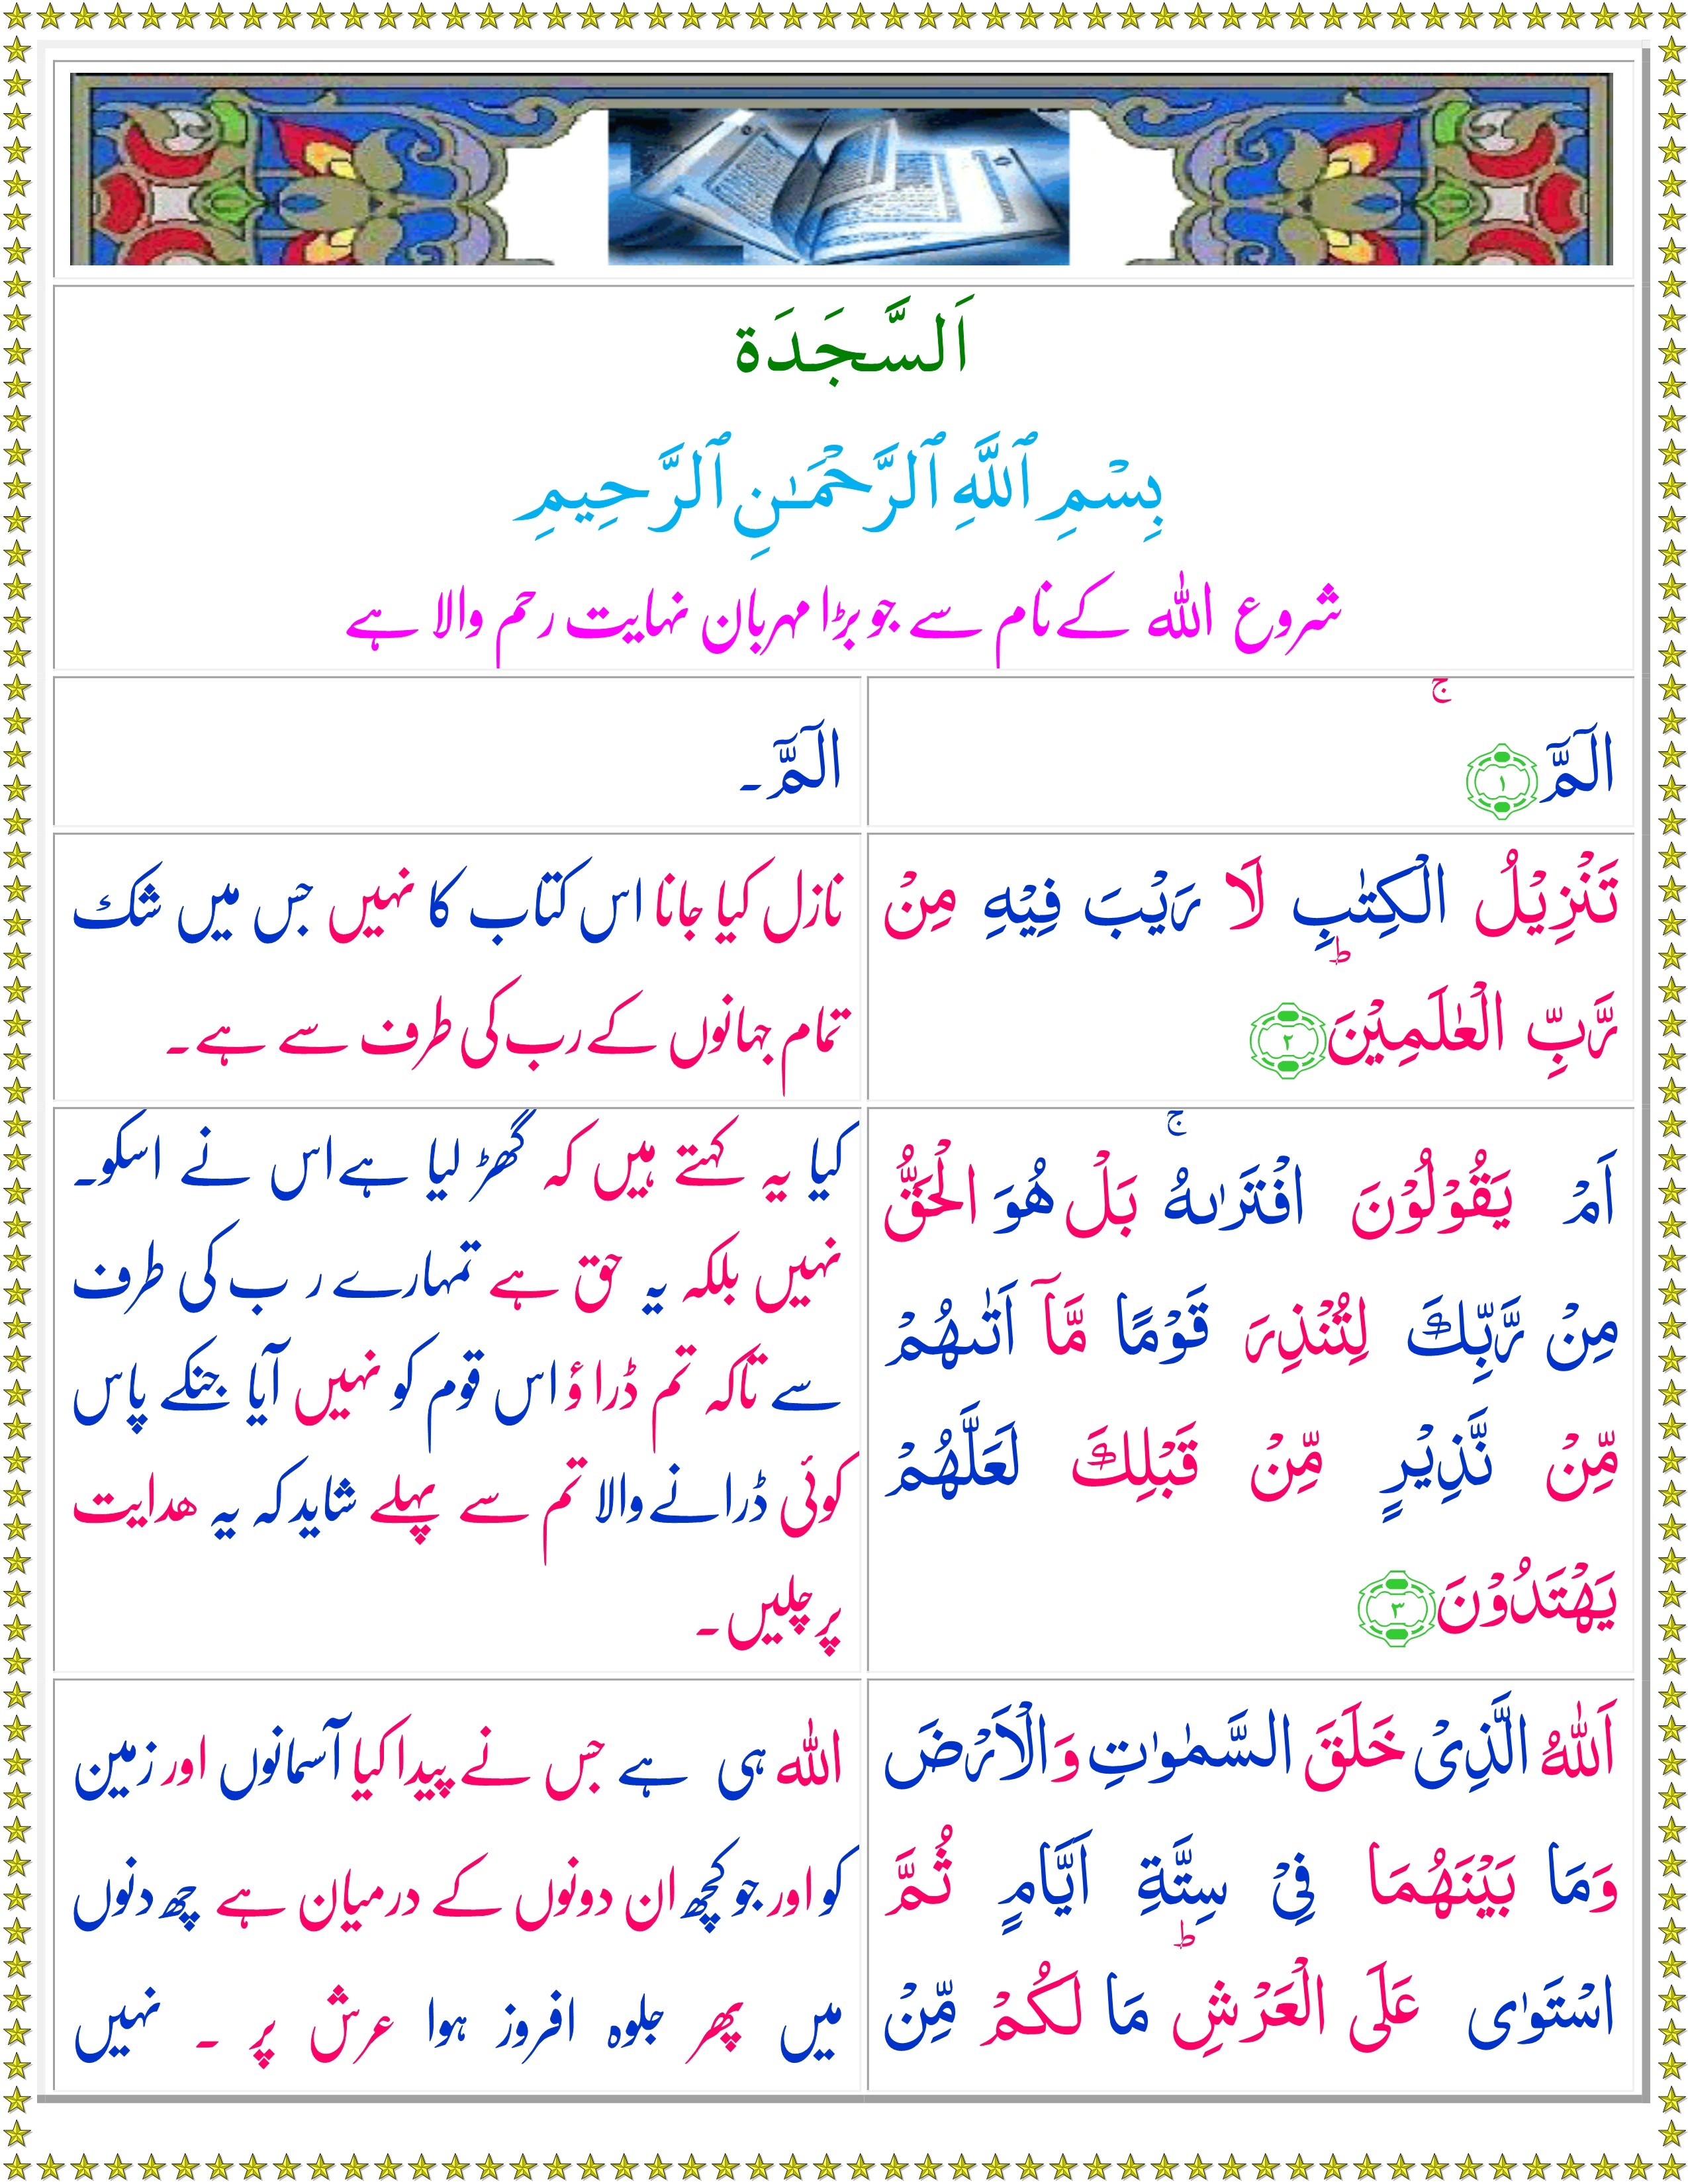 اَلسَّجَدَة
بِسْمِ ٱللَّهِ ٱلرَّحْمَـٰنِ ٱلرَّحِيمِ
شروع اللہ کے نام سے جو بڑا مہربان نہایت رحم والا ہے
الٓمّٓ ۚ ﴿۱﴾
الٓمّٓ ۔
تَنْزِيْلُ الْكِتٰبِ لَا رَيْبَ فِيْهِ مِنْ
رَّبِّ الْعٰلَمِيْنَ ؕ ﴿۲﴾
نازل کیا جانا اس کتاب کا نہیں جس میں شک
تمام جہانوں کے رب کی طرف سے ہے۔
اَمْ يَقُوْلُوْنَ افْتَرٰٮهُ ۚ بَلْ هُوَ الْحَقُّ
مِنْ رَّبِّكَ لِتُنْذِرَ قَوْمًا مَّاۤ اَتٰٮهُمْ
مِّنْ نَّذِيْرٍ مِّنْ قَبْلِكَ لَعَلَّهُمْ
يَهْتَدُوْنَ ﴿۳﴾
کیا یہ کہتے ہیں کہ گھڑ لیا ہے اس نے اسکو۔
نہیں بلکہ یہ حق ہے تمہارے ر ب کی طرف
سے تاکہ تم ڈراؤ اس قوم کو نہیں آیا جنکے پاس
کوئی ڈرانے والا تم سے پہلے شاید کہ یہ ھدایت
پر چلیں۔
اَللّٰهُ الَّذِىْ خَلَقَ السَّمٰوٰتِ وَالْاَرْضَ
وَمَا بَيْنَهُمَا فِىْ سِتَّةِ اَيَّامٍ ثُمَّ
اسْتَوٰى عَلَى الْعَرْشِ ؕ مَا لَكُمْ مِّنْ
اللہ ہی ہے جس نے پیدا کیا آسمانوں اور زمین
کو اور جو کچھ ان دونوں کے درمیان ہے چھ دنوں
میں پھر جلوہ افروز ہوا عرش پر ۔ نہیں